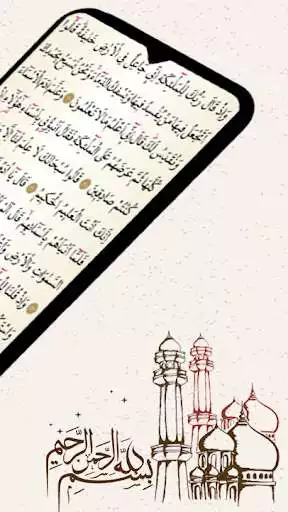 وَإِذْ قَالَ رَبُّكَ لِلْمَلَٰٓئِكَةِ إِنِّى جَاعِلٌ فِى ٱلْأَرْضِ خَلِيفَةً قَالُوٓا۟
أَتَجْعَلُ فِيهَا مَن يُفْسِدُ فِيهَا وَيَسْفِكُ ٱلدِّمَآءَ وَنَحْنُ نُسَبِّحُ بِحَمْدِكَ
وَنُقَدِّسُ لَكَ قَالَ إِنِّىٓ أَعْلَمُ مَا لَا تَعْلَمُونَ وَعَلَّمَ ءَادَمَ ٱلْأَسْمَآءَ
كُلَّهَا ثُمَّ عَرَضَهُمْ عَلَى ٱلْمَلَٰٓئِكَةِ فَقَالَ أَنۢبِـُٔونِى بِأَسْمَآءِ هَٰٓؤُلَآءِ
كُنتُمْ صَٰدِقِينَ قَالُوا۟ سُبْحَٰنَكَ لَا عِلْمَ لَنَآ
إِنَّكَ أَنتَ ٱلْعَلِيمُ ٱلْحَكِيمُ قَالَ
فَلَمَّآ أَنۢبَأَهُم بِأَسْمَآئِهِمْ قَالَ
ٱلسَّمَٰوَٰتِ وَٱلْأَرْضِ
وَإِذْ قُلْنَا
بسم الله الرحمن الرحيم